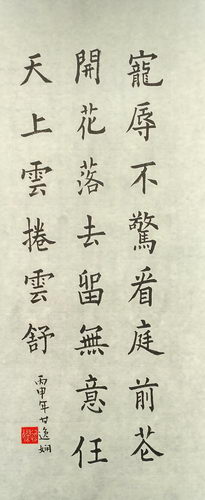 寵辱不驚看庭前花
開花落去留無意任
天上雲捲雲舒
丙申年甘逸嫻